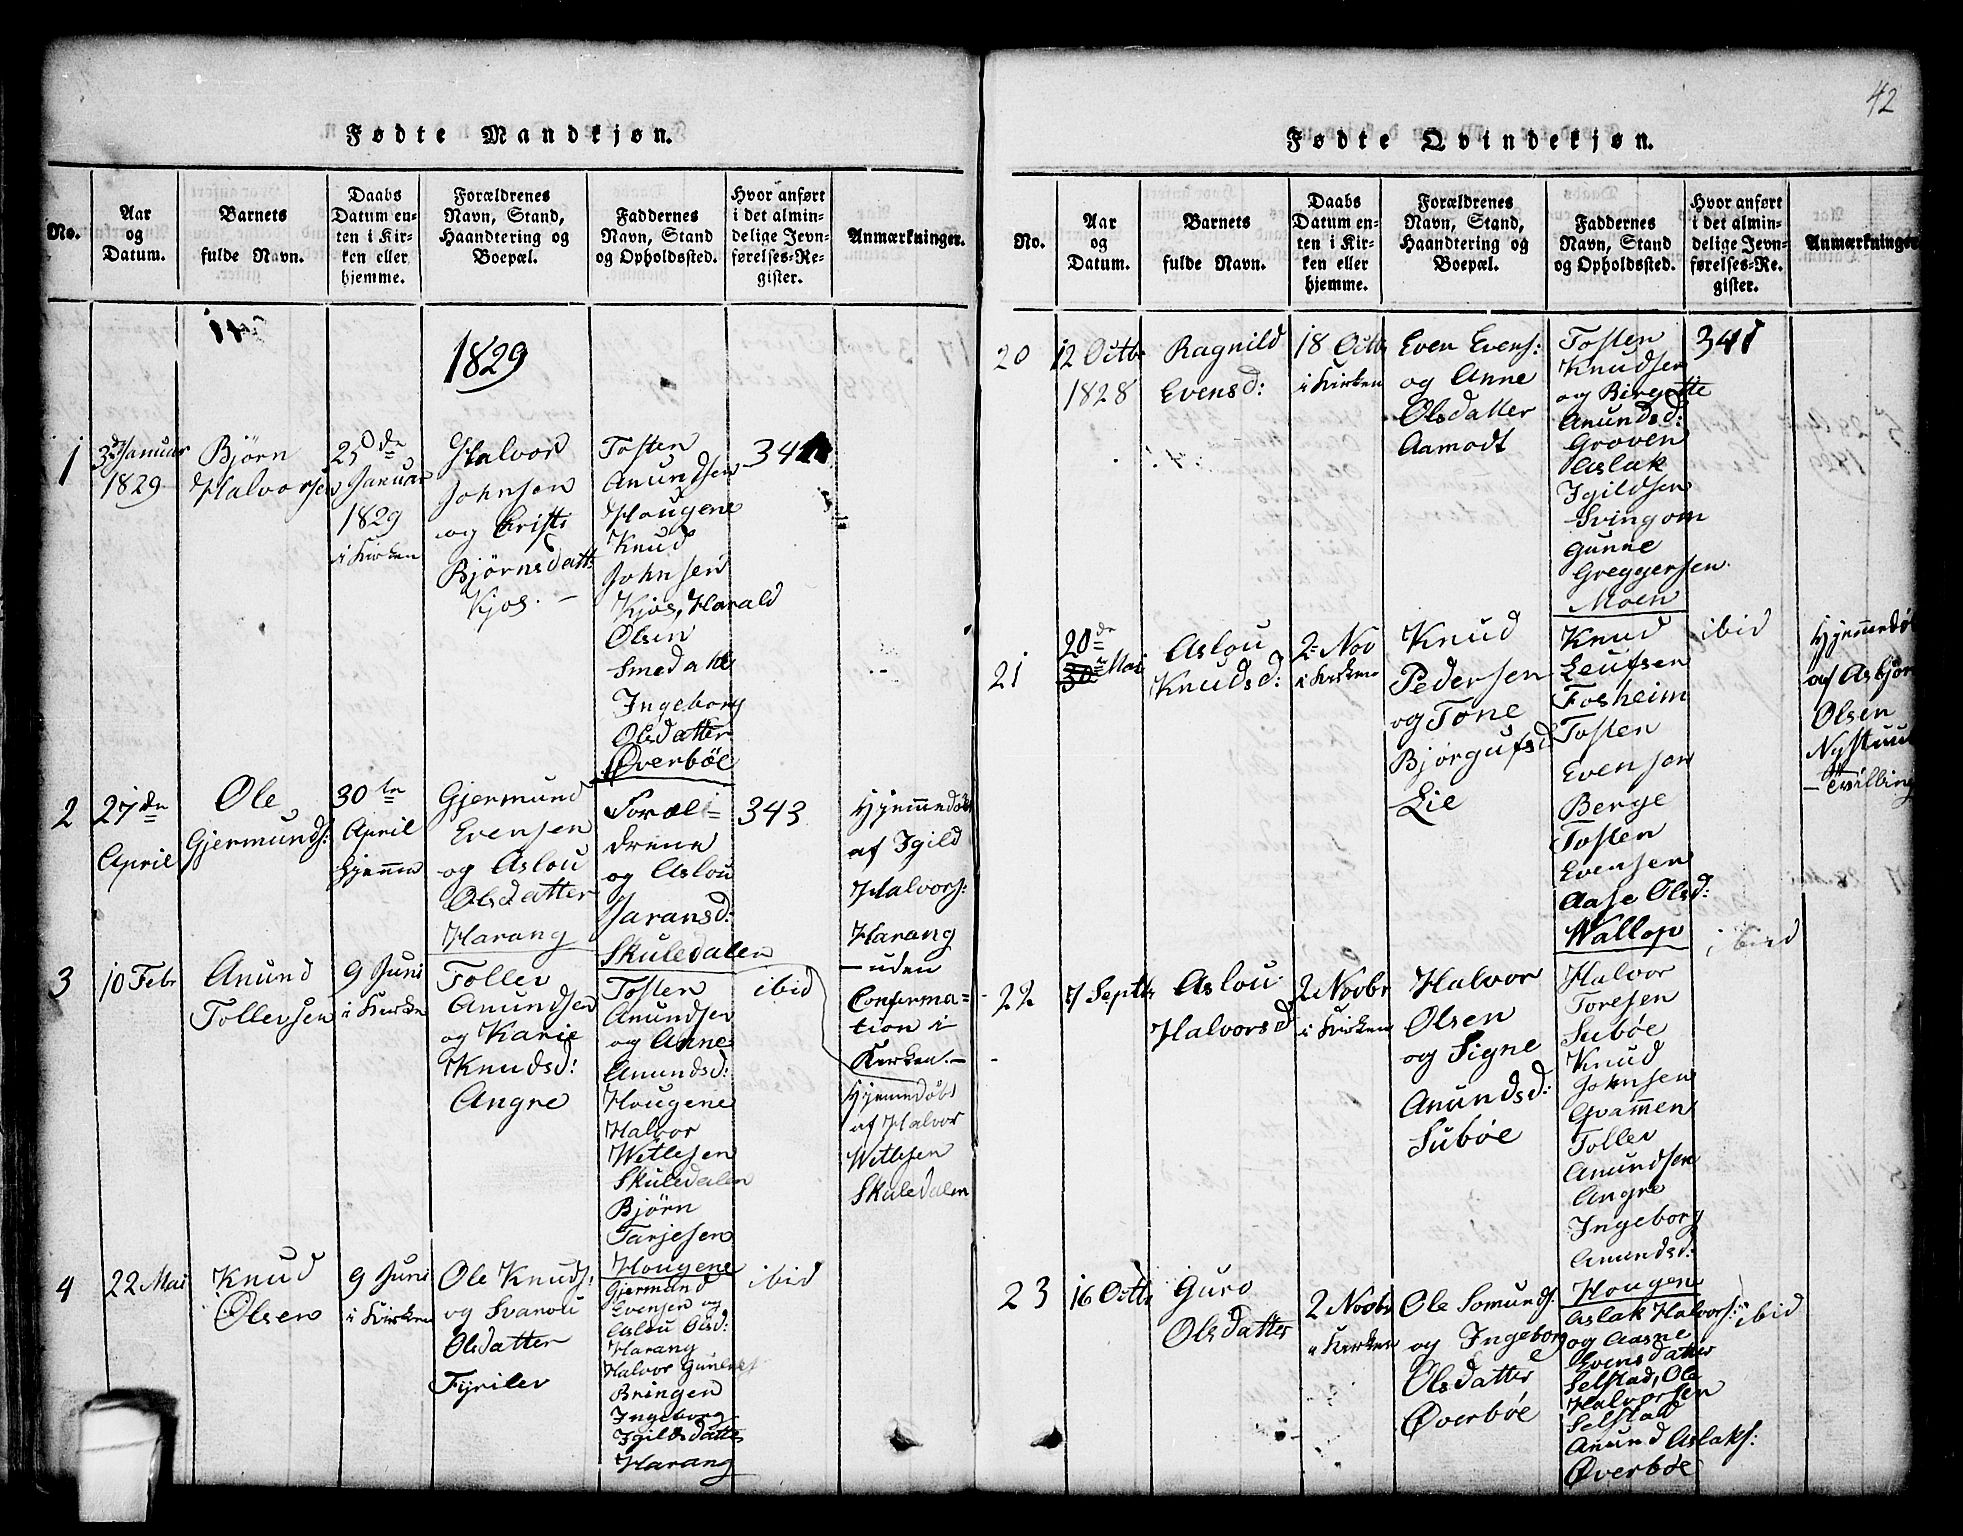 42
Fødte Mandkjøn.
No.
Aar
og
Datum.
Barnets
fulde Navn.
Daabs
Datum en-
ten i Kir-
ken eller
hjemme.
Forældrenes
Navn, Stand,
Haandtering og
Boepæl.
Faddernes
Navn, Stand
og Opholdssted.
Hvor anført
i det almin-
delige Jevn-
førelses-Re-
gister.
Anmærkninger.
1829
1
3de Januar
1829
Bjørn
Halvorsen
25de
Januar
1829
i Kirken
Halvor
Johnsen
og Cristi
Bjørnsdatt:
Kjos. -
Tosten
Anundsen
Hougene
Knud
Johnsen
Kjos, Harald
Olsen
Smedakås
Ingeborg
Olsdatter
Øverbøe
341
2
27de
April
Ole
Gjermunds:
30te
April
hjemme
Gjermund
Evensen
og Aslou
Olsdatter
Harang
Foræl-
drene
og Aslou
Jaransd:
Skuledalen
343
Hjemmedøbt
af Igild
Halvors:
Harang
- uden
Conferma-
tion i
Kirken. -
3
10 Febr
Anund
Tollevsen
9 Juni
i Kirken
Tollev
Anundsen
og Karie
Knudsd:
Angre
Tosten
Anundsen
og Anne
Anundsd:
Hougene
Halvor
Wetlesen
Skuledalen
Bjørn
Tarjesen
Hougene
ibid
Hjemmedøbt
af Halvor
Wetlesen
Skuledalen
4
22 Mai
Knud
Olsen
9 Juni
i Kirken
Ole Knuds:
og Svanou
Olsdatter
Fyrilev
Gjermund
Evensen og
Aslou Olsd:
Harang
Halvor Gunleks
Bringen
Ingeborg
Igildsdatter
Harang
ibid
Fødte Qvindekjøn.
No.
Aar
og
Datum.
Barnets
fulde Navn.
Daabs
Datum en-
ten i Kir-
ken eller
hjemme.
Forældrenes
Navn, Stand,
Haandtering og
Boepæl.
Faddernes
Navn, Stand
og Opholdssted.
Hvor anført
i det almin-
delige Jevn-
førelses-Re-
gister.
Anmærkninger
20
12 Octbr
1828
Ragnild
Evensd:
18 Octbr
i Kirken
Even Evens:
og Anne
Olsdatter
Aamodt
Tosten
Knudsen
og Birgette
Anundsd:
Groven
Aslak
Igildsen
Svingom
Gunne
Greggersen
Moen
341
21
20de
Mai
Aslou
Knudsd:
2 Nov
i Kirken
Knud
Pedersen
og Tone
Bjørgufsd
Lie
Knud
Leufsen
Fosheim
Tosten
Evensen
Berge
Tosten
Evensen
Aase Olsd:
Wallop
ibid
Hjemmedøb
af Asbjør
Olsen
Nystuu
- Tvilling
22
7 Septbr
Aslou
Halvorsd
2 Novbr
i Kirken
Halvor
Olsen
og Signe
Anundsd:
Subøe
Halvor
Toresen
Subøe
Knud
Johnsen
Gvammen
Tollev
Anundsen
Angre
Ingeborg
Anundsd:
Hougen
ibid
23
16 Octbr
Guro
Olsdatter
2 Novbr
i Kirken
Ole Somunds:
og Ingeborg
Olsdatter
Øverbøe
Aslak Halvors:
og Aasne
Evensdatter
Selstad, Ole
Halvorsen
Selstad
Anund Aslaks:
Øverbøe
ibid